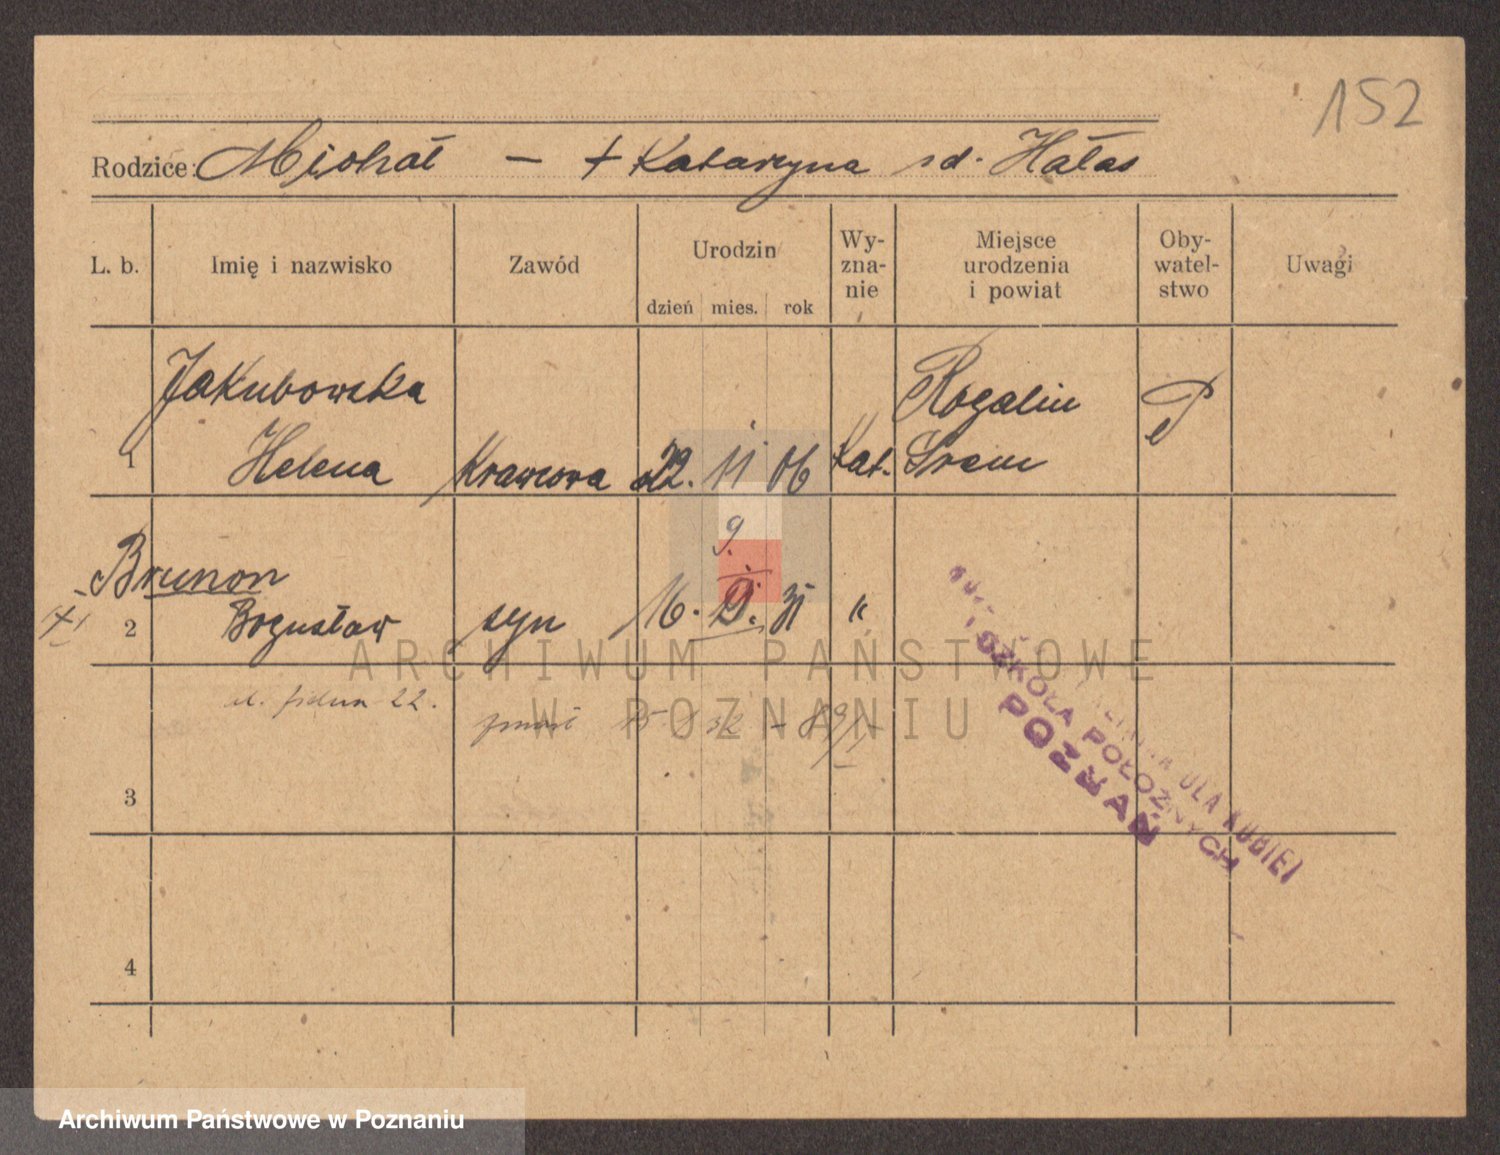 152
Rodzice: Michał — + Katarzyna zd. Hałas
L. b. Imię i nazwisko Zawód Urodzin dzień mies. rok Wy-zna-nie Miejsce urodzenia i powiat Oby-watel-stwo Uwagi
Jakubowska Rogalin P
1 Helena Krawcowa 22. 11 06 Kat. Śrem
9.
Brunon
2 Bogusław syn 16. 31 "
22.
3
4
SZKOŁA POŁOŻNYCH
POZNAŃ
ARCHIWUM PAŃSTWOWE
W POZNANIU
Archiwum Państwowe w Poznaniu